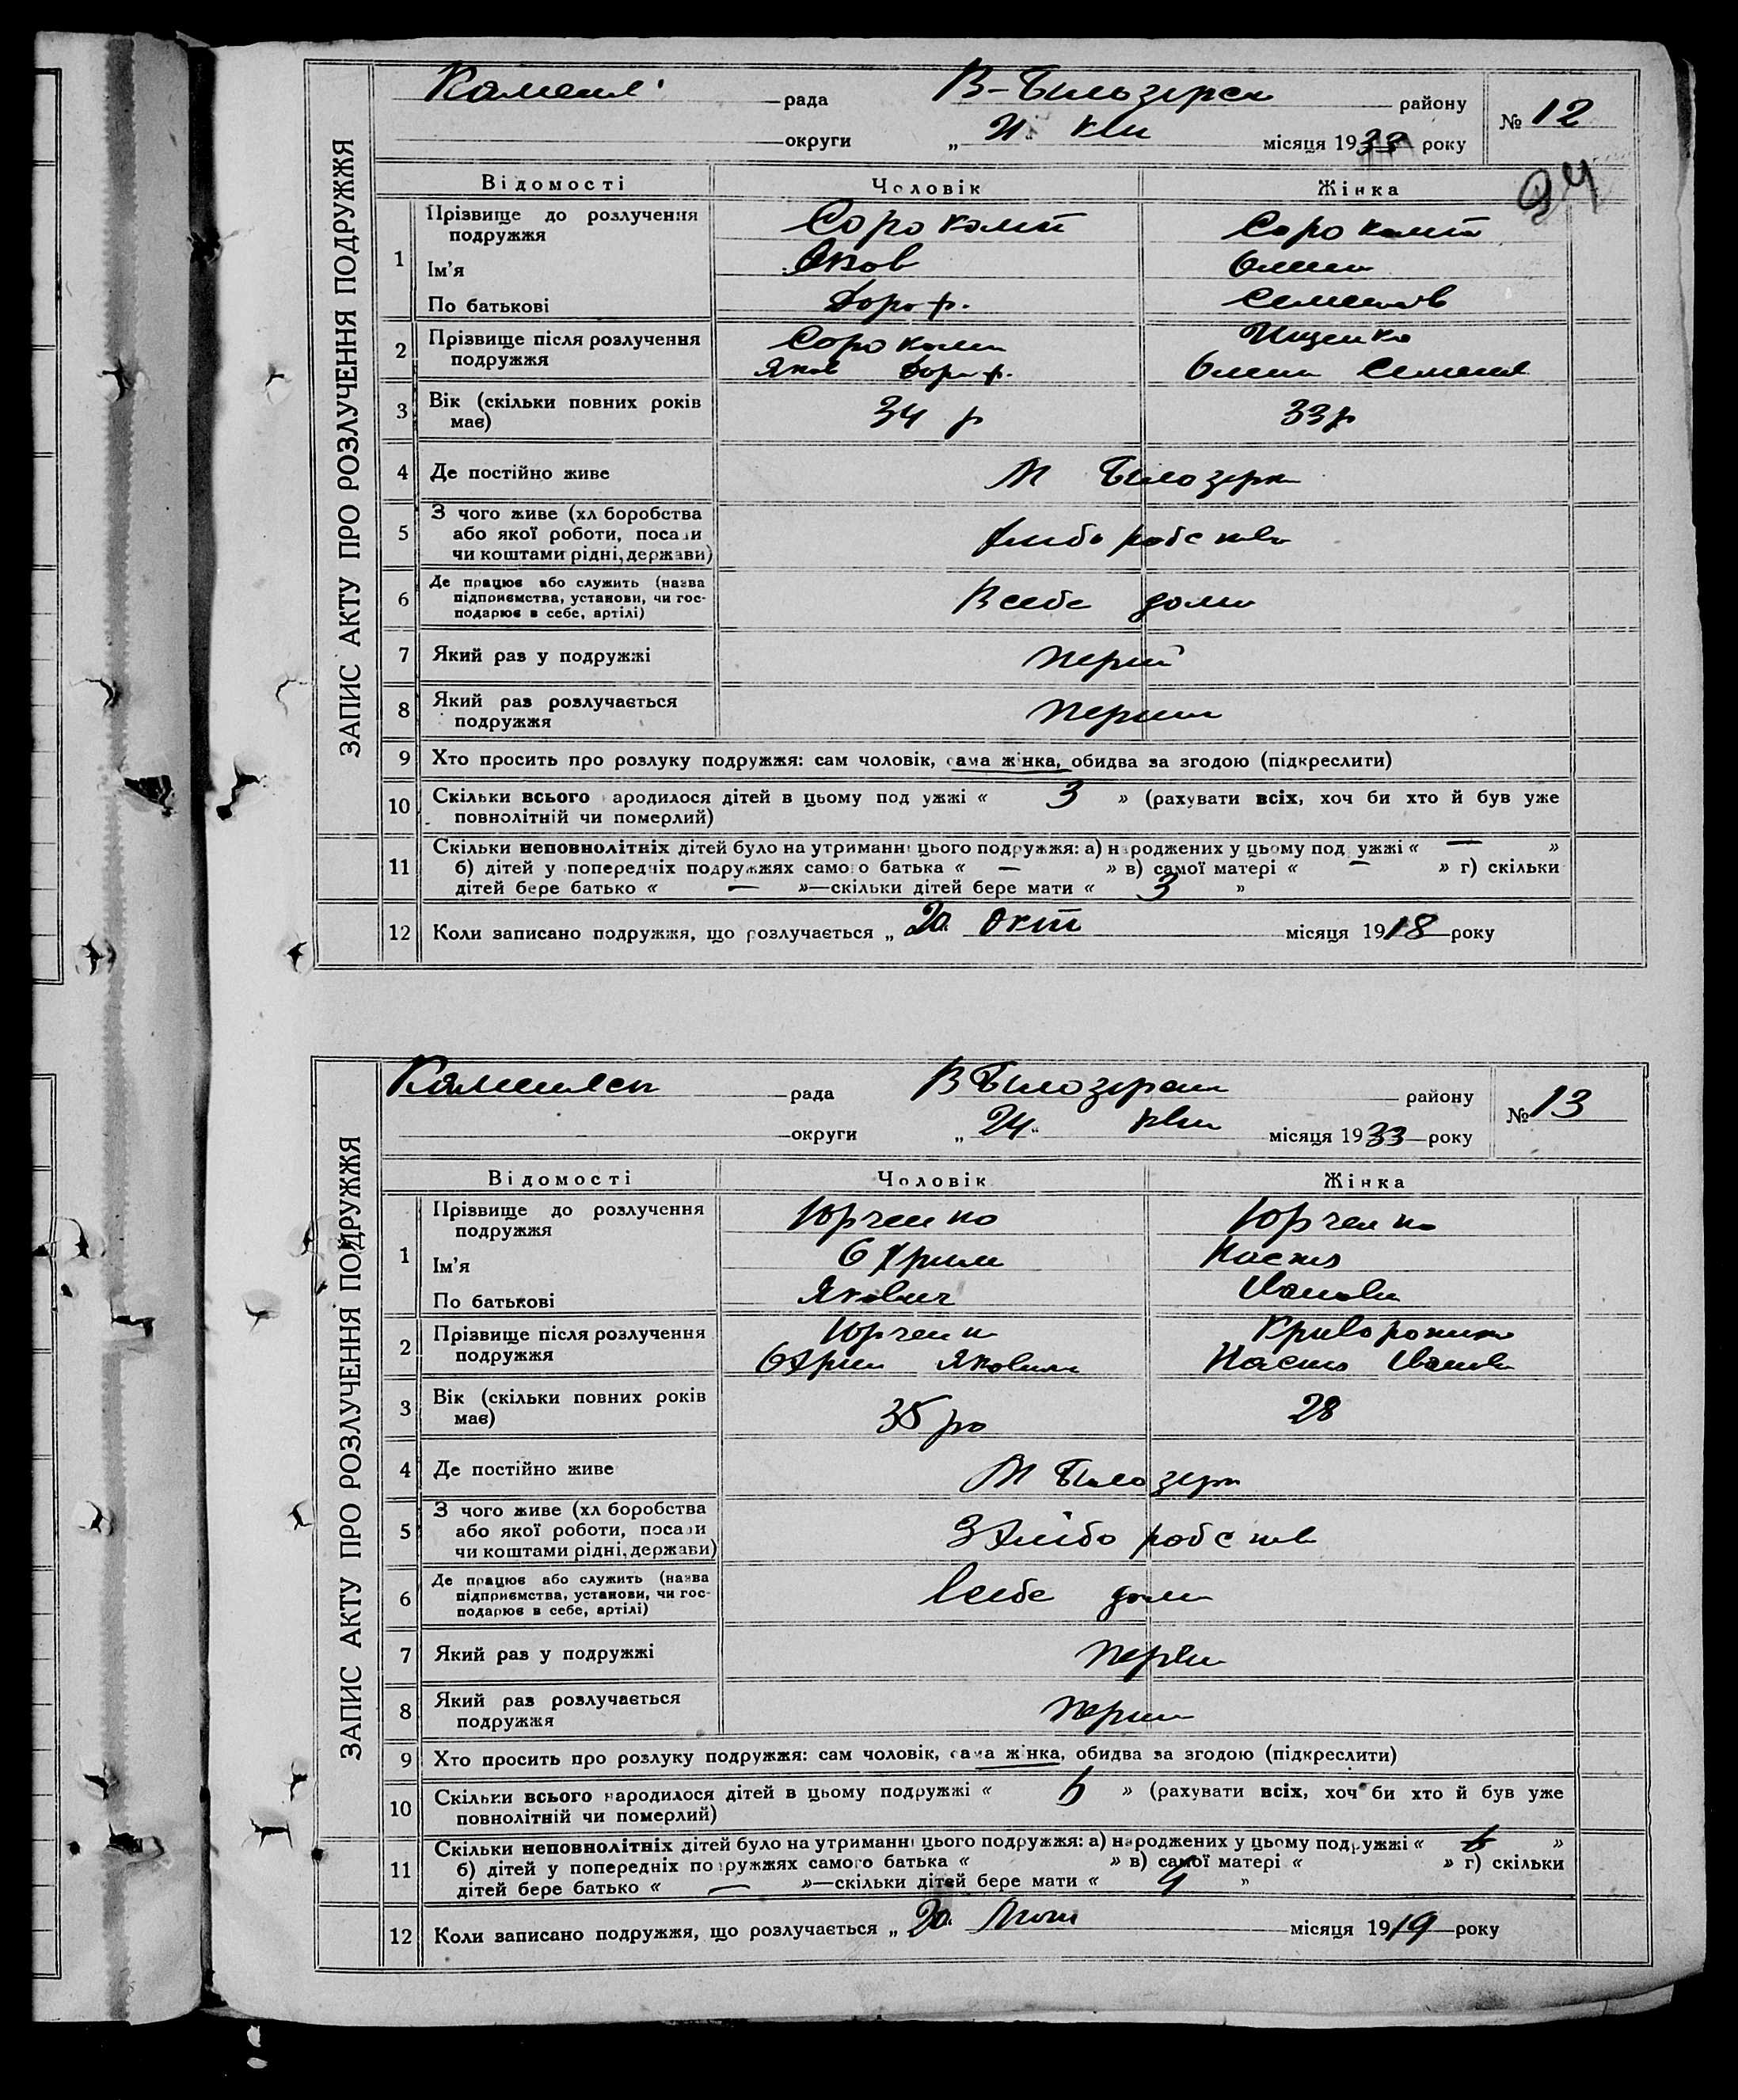 ЗАПИС АКТУ ПРО РОЗЛУЧЕННЯ ПОДРУЖЖЯ
рада В-Білозерск району № 12
округи „ 21 " кві місяця 1933 року
34
Відомості Чоловік Жінка
1 Прізвище до розлучення подружжя
Ім'я Яков Олена
По батькові Дороф. Семенов
2 Прізвище після розлучення подружжя Ищенко
Яков Дороф. Олена Семенов
3 Вік (скільки повних років має) 34 р 33 р
4 Де постійно живе М Білозерка
5 З чого живе (хліборобства
або якої роботи, посади
чи коштами рідні, держави) хліборобство
6 Де працює або служить (назва
підприємства, установи, чи гос-
подарює в себе, артілі) В себе дома
7 Який раз у подружжі перший
8 Який раз розлучається
подружжя перший
9 Хто просить про розлуку подружжя: сам чоловік, сама жінка, обидва за згодою (підкреслити)
10 Скільки всього народилося дітей в цьому подружжі « 3 » (рахувати всіх, хоч би хто й був уже
повнолітній чи померлий)
11 Скільки неповнолітніх дітей було на утриманні цього подружжя: а) народжених у цьому подружжі « — »
б) дітей у попередніх подружжях самого батька « — » в) самої матері « — » г) скільки
дітей бере батько « — »—скільки дітей бере мати « 3 »
12 Коли записано подружжя, що розлучається „ 20 " окт місяця 1918 року
ЗАПИС АКТУ ПРО РОЗЛУЧЕННЯ ПОДРУЖЖЯ
рада В Білозерск району № 13
округи „ 24 " кві місяця 1933 року
Відомості Чоловік Жінка
1 Прізвище до розлучення
подружжя Юрченко Юрченко
Ім'я Охрим Настя
По батькові Якович Иванов
2 Прізвище після розлучення
подружжя Юрченко
Охрим Якович Настя Иванов
3 Вік (скільки повних років
має) 35 ро 28
4 Де постійно живе М Білозерк
5 З чого живе (хліборобства
або якої роботи, посади
чи коштами рідні, держави) З хліборобств
6 Де працює або служить (назва
підприємства, установи, чи гос-
подарює в себе, артілі) В себе дома
7 Який раз у подружжі
8 Який раз розлучається
подружжя
9 Хто просить про розлуку подружжя: сам чоловік, сама жінка, обидва за згодою (підкреслити)
10 Скільки всього народилося дітей в цьому подружжі « 6 » (рахувати всіх, хоч би хто й був уже
повнолітній чи померлий)
11 Скільки неповнолітніх дітей було на утриманні цього подружжя: а) народжених у цьому подружжі « »
б) дітей у попередніх подружжях самого батька « » в) самої матері « » г) скільки
дітей бере батько « — »—скільки дітей бере мати « 4 »
12 Коли записано подружжя, що розлучається „ 20 " місяця 1919 року